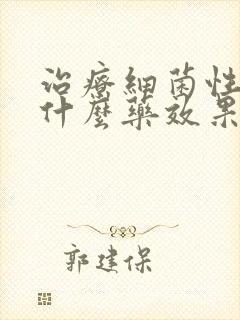 治療細菌性
什麼藥效果
郭建保